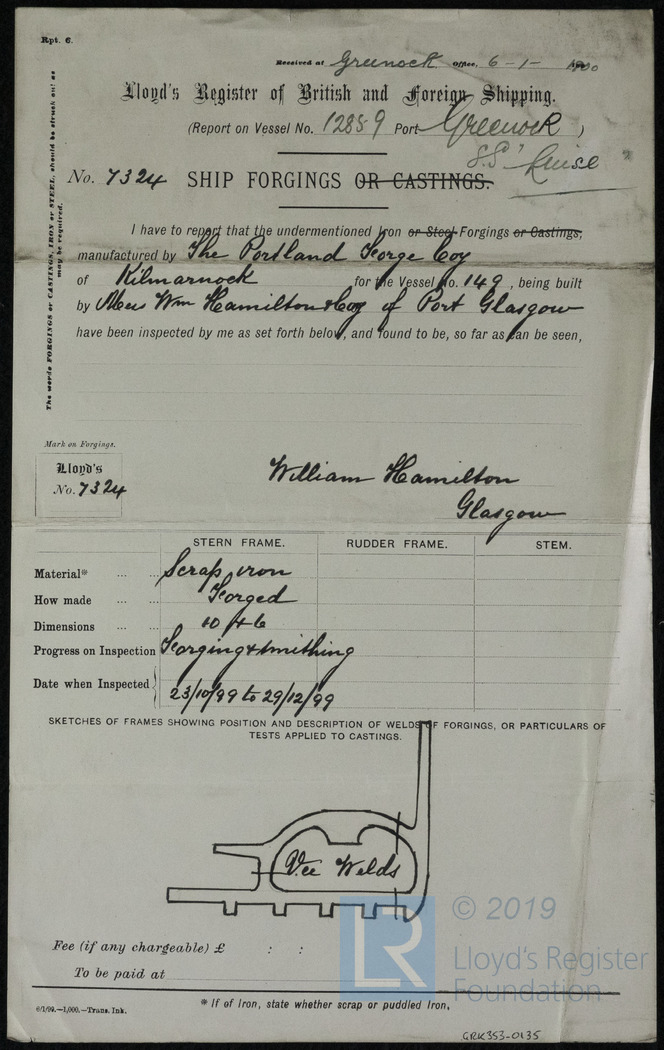 Rpt. 6.
Received at Greenock Office, 6-1-1900
Lloyd's Register of British and Foreign Shipping.
(Report on Vessel No. 12859 Port Greenock )
S.S "Luise"
No. 7324 SHIP FORGINGS OR CASTINGS.
The words FORGINGS or CASTINGS, IRON or STEEL, should be struck out as may be required.
I have to report that the undermentioned Iron or Steel Forgings or Castings,
manufactured by The Portland Forge Coy
of Kilmarnock for the Vessel No. 149, being built
by Mess Wm Hamilton & Coy of Port Glasgow
have been inspected by me as set forth below, and found to be, so far as can be seen,
Mark on Forgings.
Lloyd's
No. 7324
William Hamilton
Glasgow
STERN FRAME. RUDDER FRAME. STEM.
Material* ... ... Scrap iron
How made ... ... Forged
Dimensions ... ... 10 × 6
Progress on Inspection Forging & smithing
Date when Inspected 23/10/99 to 29/12/99
SKETCHES OF FRAMES SHOWING POSITION AND DESCRIPTION OF WELDS OF FORGINGS, OR PARTICULARS OF
TESTS APPLIED TO CASTINGS.
Vee Welds
Fee (if any chargeable) £ : :
To be paid at
* If of Iron, state whether scrap or puddled Iron.
6/1/99.—1,000.—Trans. Ink.
GRK353-0135
LR
© 2019
Lloyd's Register
Foundation